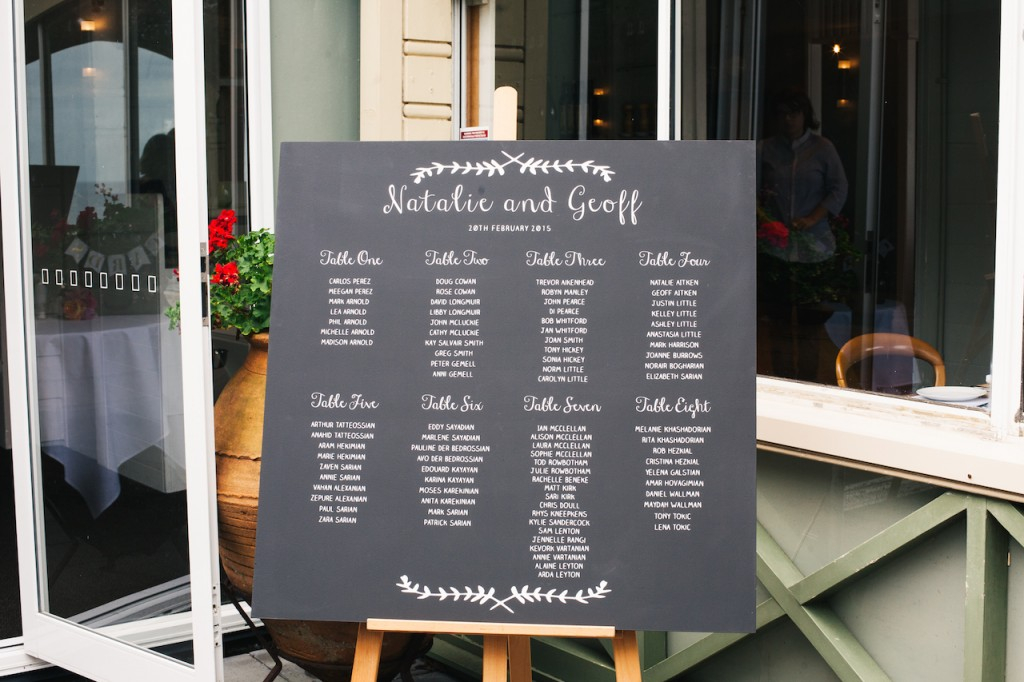 Natalie and Geoff
20TH FEBRUARY 2015
Table One
CARLOS PEREZ
MEEGAN PEREZ
MARK ARNOLD
LEA ARNOLD
PHIL ARNOLD
MICHELLE ARNOLD
MADISON ARNOLD
Table Two
DOUG COWAN
ROSE COWAN
DAVID LONGMUIR
LIBBY LONGMUIR
JOHN MCLUCKIE
CATHY MCLUCKIE
KAY SALVAIR SMITH
GREG SMITH
PETER GEMELL
ANNI GEMELL
Table Three
TREVOR AIKENHEAD
ROBYN MANLEY
JOHN PEARCE
DI PEARCE
BOB WHITFORD
JAN WHITFORD
JOAN SMITH
TONY HICKEY
SONIA HICKEY
NORM LITTLE
CAROLYN LITTLE
Table Four
NATALIE AITKEN
GEOFF AITKEN
JUSTIN LITTLE
KELLEY LITTLE
ASHLEY LITTLE
ANASTASIA LITTLE
MARK HARRISON
JOANNE BURROWS
NORAIR BOGHARIAN
ELIZABETH SARIAN
Table Five
ARTHUR TATTEOSSIAN
ANAHID TATTEOSSIAN
ARAM HEKIMIAN
MARIE HEKIMIAN
ZAVEN SARIAN
ANNIE SARIAN
VAHAN ALEXANIAN
ZEPURE ALEXANIAN
PAUL SARIAN
ZARA SARIAN
Table Six
EDDY SAYADIAN
MARLENE SAYADIAN
PAULINE DER BEDROSSIAN
AVO DER BEDROSSIAN
EDOUARD KAYAYAN
KARINA KAYAYAN
MOSES KAREKINIAN
ANITA KAREKINIAN
MARK SARIAN
PATRICK SARIAN
Table Seven
IAN MCCLELLAN
ALISON MCCLELLAN
LAURA MCCLELLAN
SOPHIE MCCLELLAN
TOD ROWBOTHAM
JULIE ROWBOTHAM
RACHELLE BENEKE
MATT KIRK
SARI KIRK
CHRIS DOULL
RHYS KNEEPKENS
KYLIE SANDERCOCK
SAM LENTON
JENNELLE RANGI
KEVORK VARTANIAN
ANNIE VARTANIAN
ALAINE LEYTON
ARDA LEYTON
Table Eight
MELANIE KHASHADORIAN
RITA KHASHADORIAN
ROB HEZKIAL
CRISTINA HEZKIAL
YELENA GALSTIAN
AMAR HOVAGIMIAN
DANIEL WALLMAN
MAYDAH WALLMAN
TONY TOKIC
LENA TOKIC